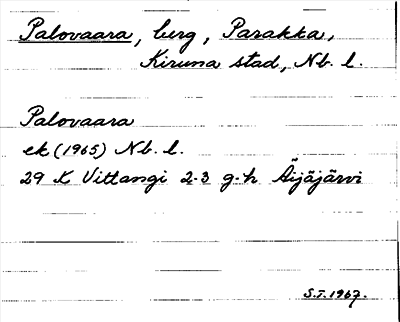 Palovaara, berg, Parakka,
Kiruna stad, Nb. l.
Palovaara
ek (1965) Nb. l.
29 K Vittangi 2-3 g-h Äijäjärvi
S.I. 1967.